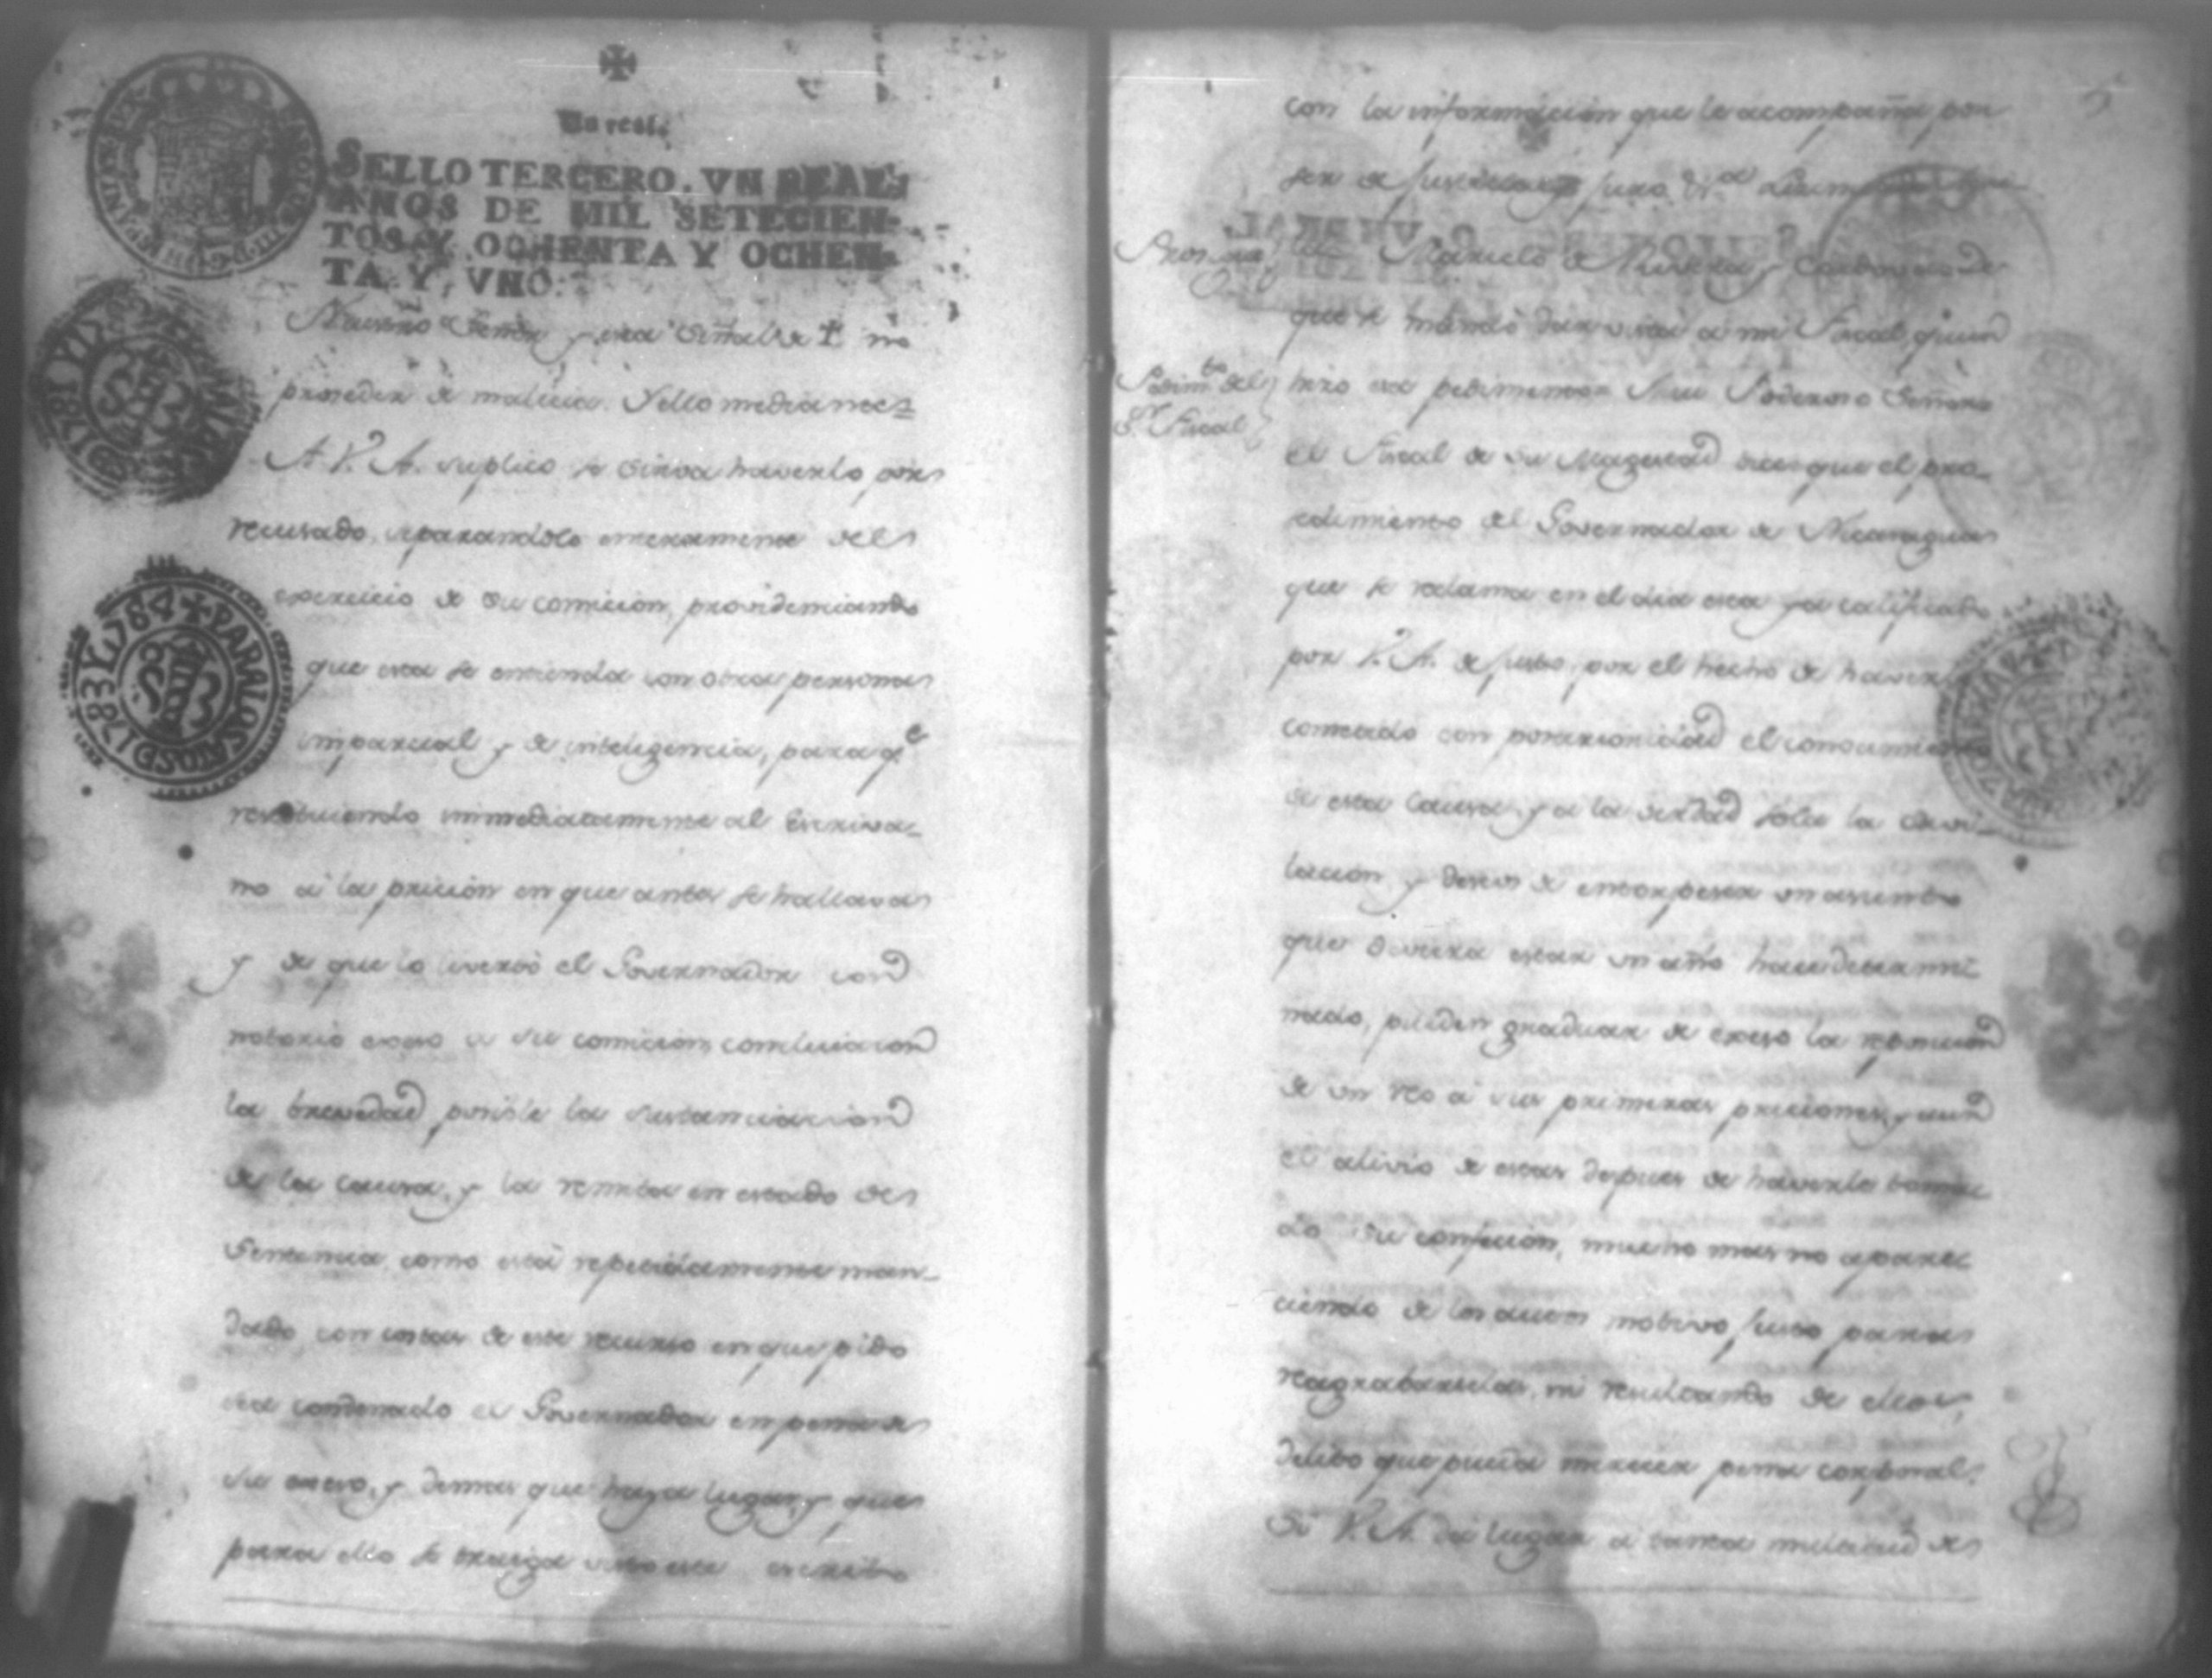 Un real.
SELLO TERCERO. VN REAL,
AÑOS DE MIL SETECIEN-
TOS Y OCHENTA Y OCHEN-
TA Y VNO.
Nuestro Señor y esta Señal de † no
proceder de malicia. Y ello mediante
A V. A. suplico se sirva haverlo por
recusado, separandolo enteramente del
exercicio de su comicion, providenciando
que esta se entienda con otra persona
imparcial y de inteligencia, para q.e
restituiendo immediatamente al Escriva-
no a la pricion en que antes se hallava
y de que lo livertó el Governador con
notorio exeso a su comicion, concluia con
la brevedad posible la sustanciacion
de la causa, y la remita en estado de
Sentencia como está repetidamente man-
dado, con costas de este recurso en que pido
sea condenado el Governador en pena de
su exeso, y demas que haya lugar, y que
para ello se traiga visto este escrito
1784 PARA LOS AÑOS D 1783 Y
con la informacion que le acompaña por
ser de Justicia juro &.a
Mariclo de
que se mandó dar vista a mi Fiscal, quien
Pedim.to del
S.r Fiscal
hizo este pedimento Muy Poderoso Señor
el Fiscal de Su Magestad dice que el pro-
cedimiento del Governador de Nicaragua
que se reclama en el dia esta ya calificado
por V. A. de justo, por el hecho de haver
cometado con posterioridad el conocimiento
de esta causa, y a la verdad solo la cavi-
lacion y deseos de entorpeser un asunto
que deviera estar un año hace determi-
nado, pueden graduar de exeso la reposicion
de un reo a sus primeras priciones, y aun
el alivio de estas despues de haverle toma-
do su confecion, mucho mas no apare-
ciendo de los autos motivo justo para
reagrabarselas, ni resultando de ellos,
delito que pueda merecer pena corporal.
Si V. A. da lugar a tanta multitud de